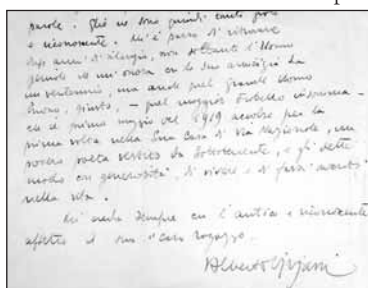 parole. Gliene sono quindi tanto grato
e riconoscente. Mi è parso di ritrovare
dopo anni, di silenzio, non soltanto l'Uomo
geniale che mi onora con la sua amicizia da
un ventennio, ma anche quel grande Uomo
buono, giusto, — quel maggior fratello insomma —
che il primo maggio del 1919 accolse per la
prima volta nella Sua casa di Via Nazionale, un
povero poeta vestito da sottotenente, e gli dette
modo con generosità, di vivere e di farsi avanti
nella vita.
Mi creda sempre con l'antico e riconoscente
affetto il suo "caro ragazzo".
Alberto Viviani